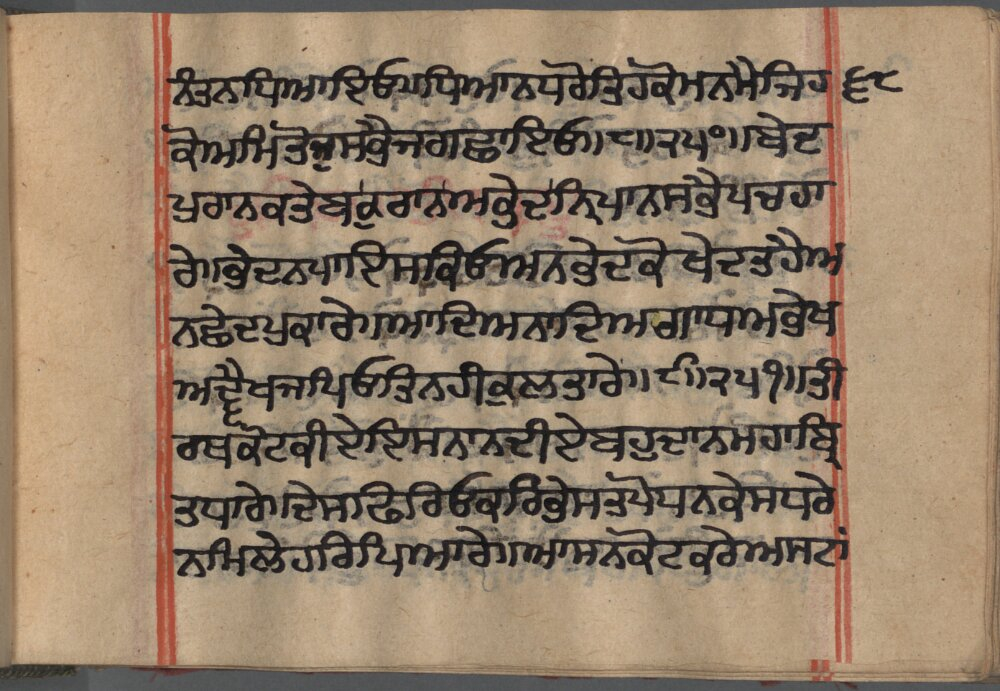 ਨੰਤਨਧਿਆਇਓ॥ਧਿਆਨਧਰੋਤਿਹਕੋਮਨਮੈਜਿਹ ੬੮
ਕੋਅਮਿਤੋਜੁਸਭੈਜਗਛਾਇਓ॥੮॥੨੫੦॥ਬੇਦ
ਪੁਰਾਨਕਤੇਬਕੁਰਾਨਅਭੇਦਨ੍ਰਿਪਾਨਸਭੈਪਚਹਾ
ਰੇ॥ਭੇਦਨਪਾਇਸਕਿਓਅਨਭੇਦਕੋਖੇਦਤਹੈਅ
ਨਛੇਦਪੁਕਾਰੇ॥ਆਦਿਅਨਾਦਿਅਗਾਧਅਭੇਖ
ਅਦ੍ਵੈਖਜਪਿਓਤਿਨਹੀਕੁਲਤਾਰੇ॥੯॥੨੫੧॥ਤੀ
ਰਥਕੋਟਕੀਏਇਸਨਾਨਦੀਏਬਹੁਦਾਨਮਹਾਬ੍ਰਿ
ਤਧਾਰੇ॥ਦੇਸਫਿਰਿਓਕਰਿਭੇਸਤਪੋਧਨਕੇਸਧਰੇ
ਨਮਿਲੇਹਰਿਪਿਆਰੇ॥ਆਸਨਕੋਟਕਰੇਅਸਟਾਂ